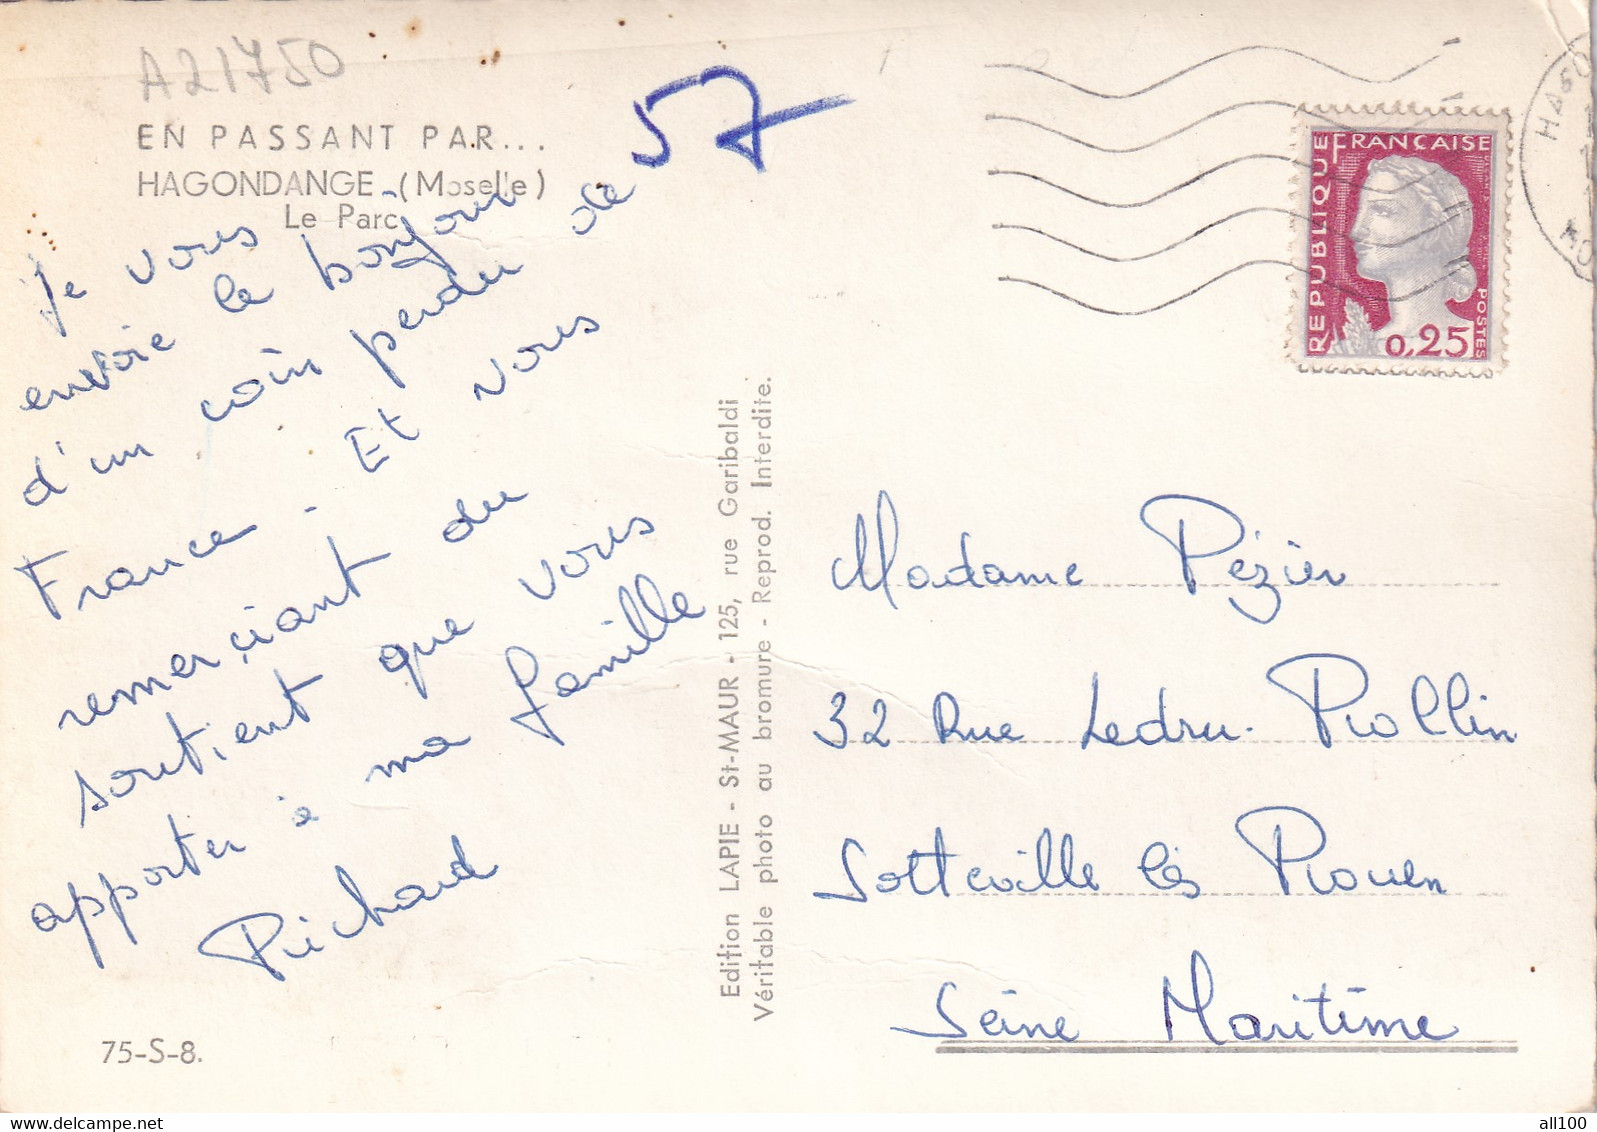 A21750
57
EN PASSANT PAR...
HAGONDANGE - (Moselle)
Le Parc
Je vous
envoie le bonjour
d'un coin perdu de
France - Et vous
remerciant du
soutient que vous
apporter à ma famille
Richard
75-S-8.
Edition LAPIE - St-MAUR - 125, rue Garibaldi
Véritable photo au bromure - Reprod. Interdite.
REPUBLIQUE FRANÇAISE
POSTES
0,25
HAGO
MO
Madame Pézier
32 Rue Ledru-Rollin
Sotteville lès Rouen
Seine Maritime
all100